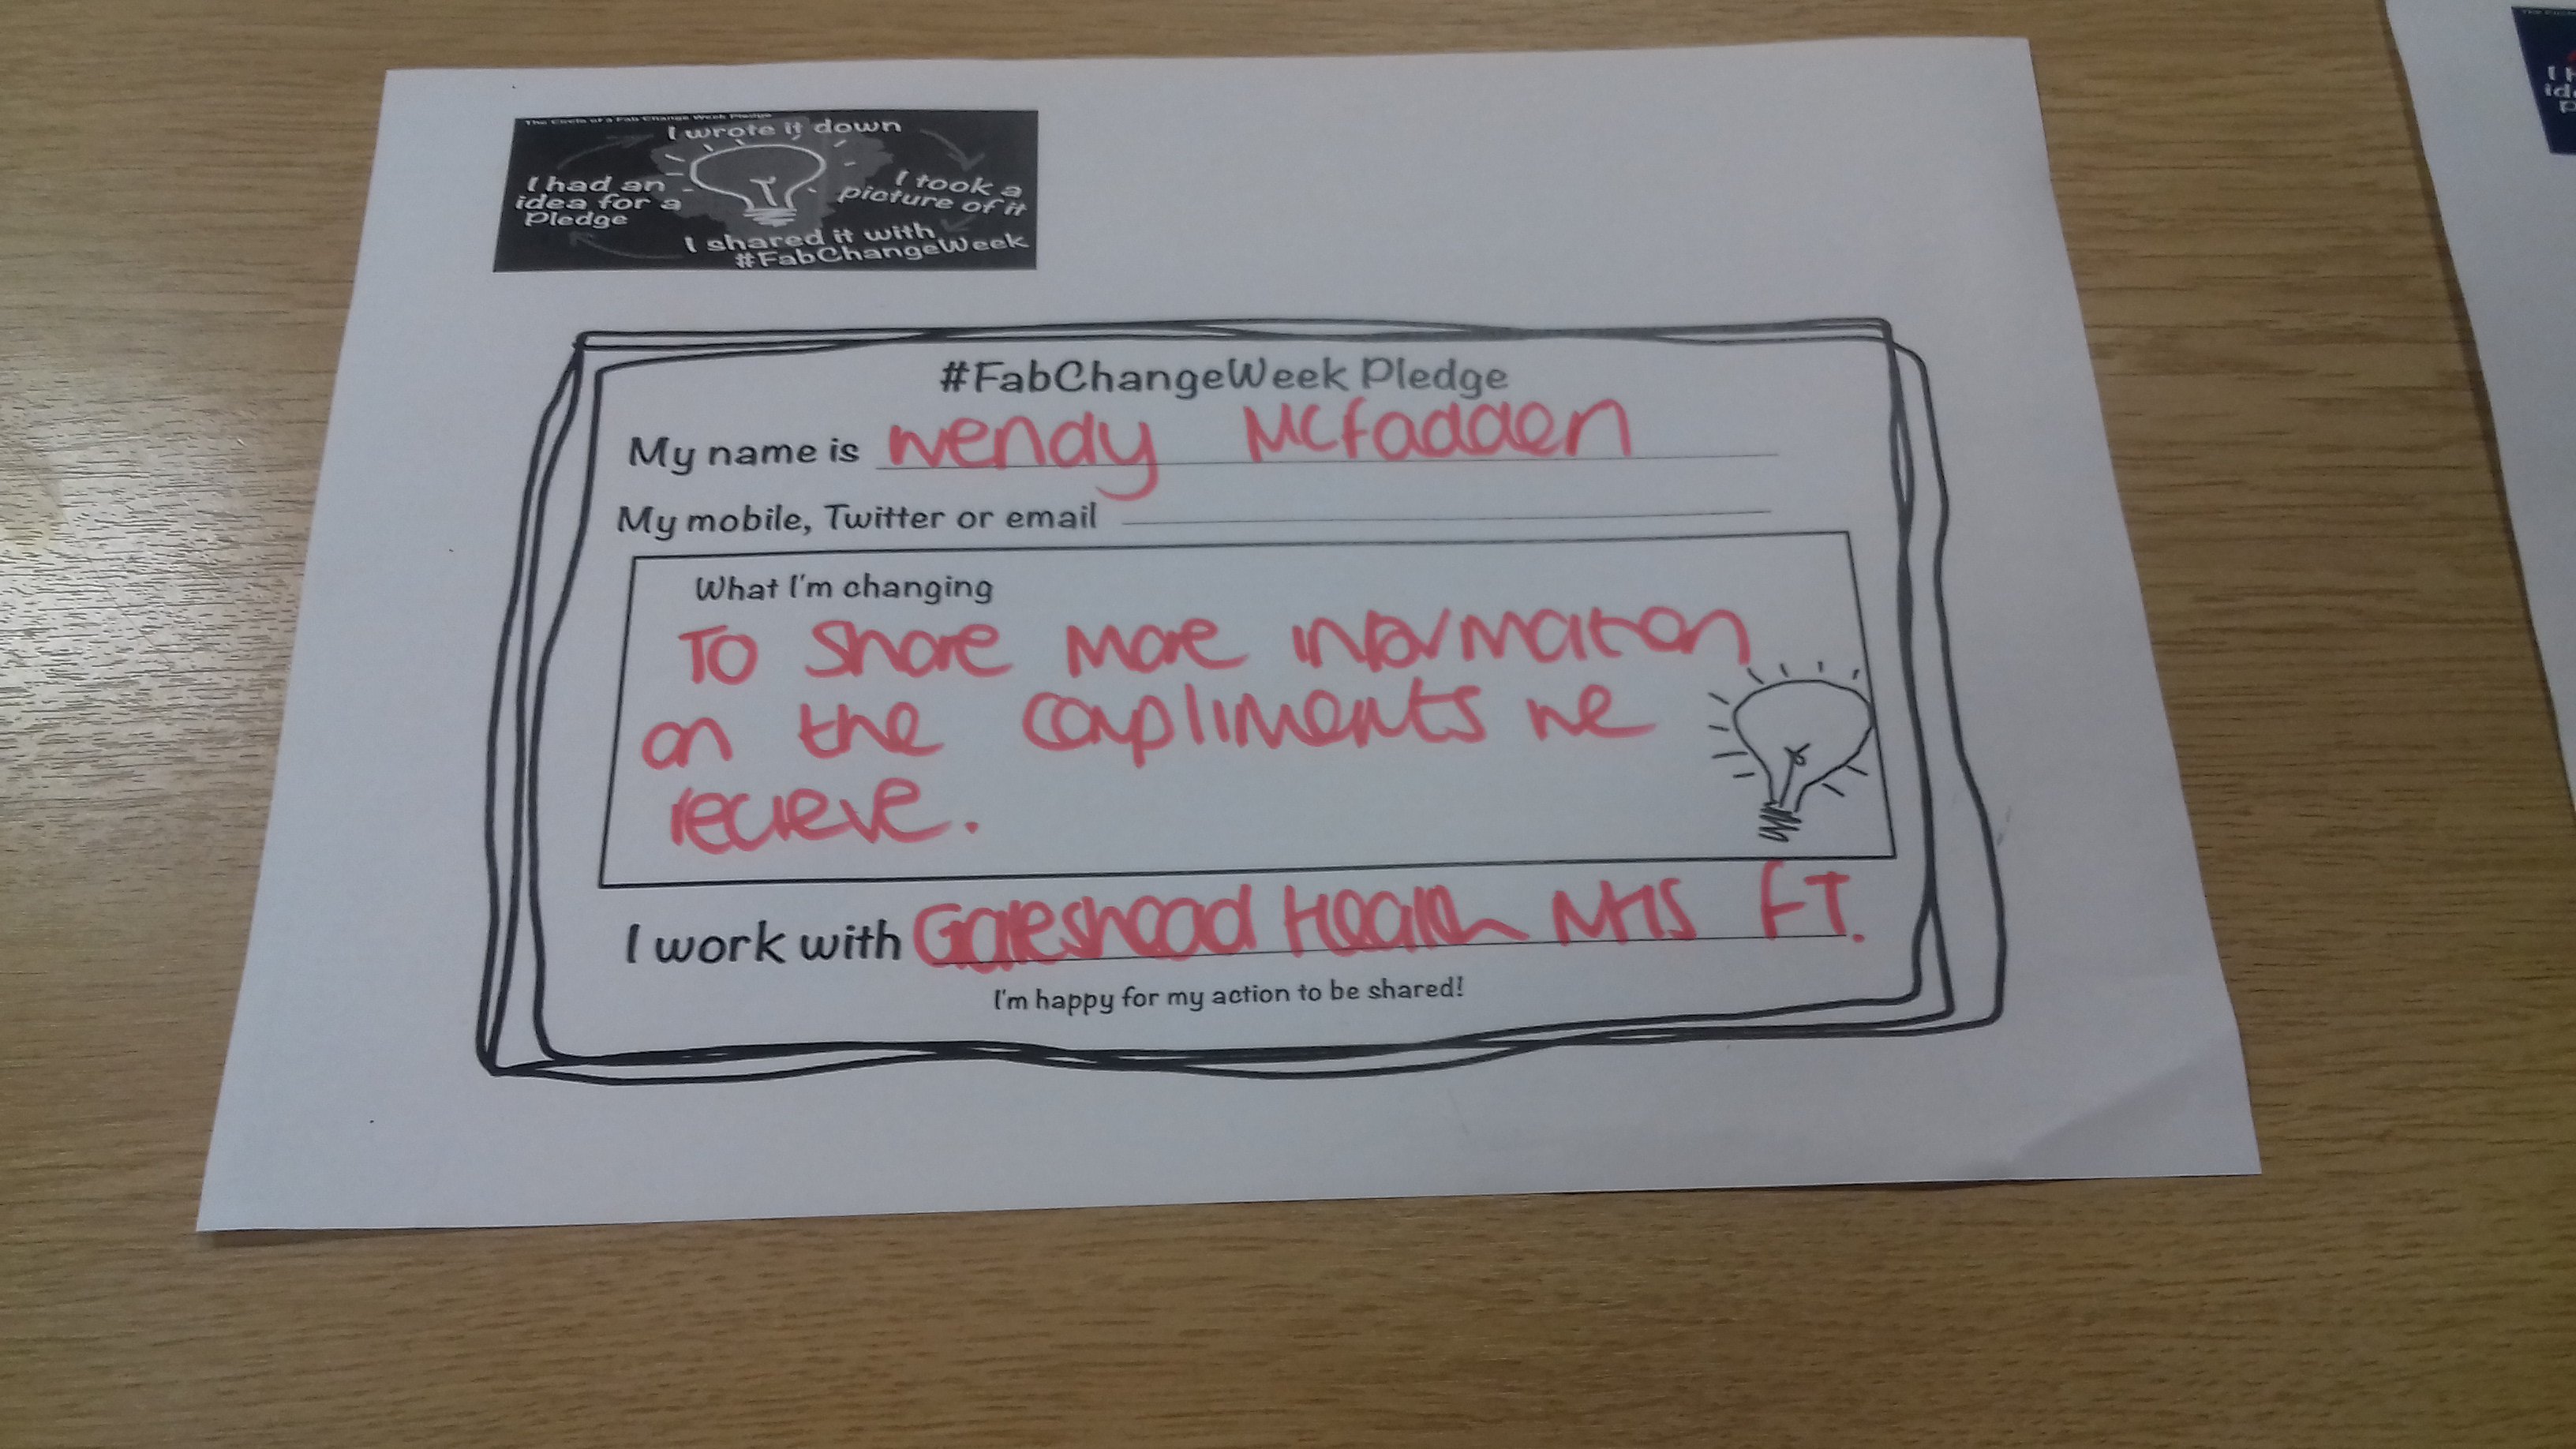 The Circle of a Fab Change Week Pledge
I wrote it down
I took a
picture of it
I shared it with
#FabChangeWeek
I had an
idea for a
Pledge
#FabChangeWeek Pledge
My name is Wendy McFadden
My mobile, Twitter or email
What I'm changing
To share more information
on the compliments we
recieve.
I work with Gateshead Health NHS FT.
I'm happy for my action to be shared!